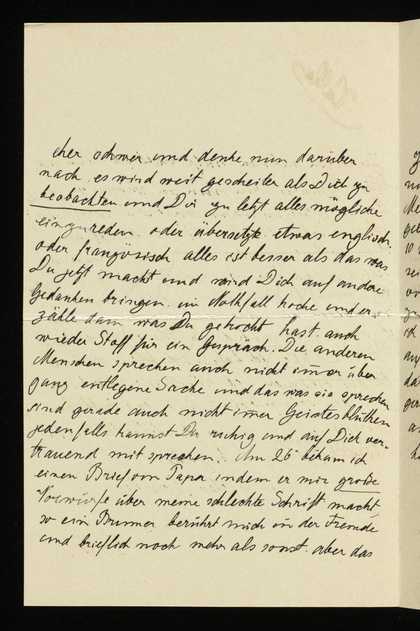 eher schwer und denke nun darüber
nach, es wird weit gescheiter als Dich zu
beobachten und Dir zu letzt alles mögliche
einzureden, oder übersetze etwas englisch
oder französisch alles ist besser als das was
Du jetzt machst und wird Dich auf andere
Gedanken bringen. im Nothfall koche und er-
zähle dann was Du gekocht hast. auch
wieder Stoff für ein Gespräch. Die anderen
Menschen sprechen auch nicht im̄er über
ganz entlegene Sache und das was sie sprechen
sind gerade auch nicht im̄er Geistesblüthen
jedenfalls kannst Du ruhig und auf Dich ver-
trauend mit sprechen. Am 26 bekam ich
einen Brief vom Papa indem er mir große
Vorwürfe über meine schlechte Schrift macht,
so ein Brumer berührt mich in der Fremde
und brieflich noch mehr als sonst. aber das